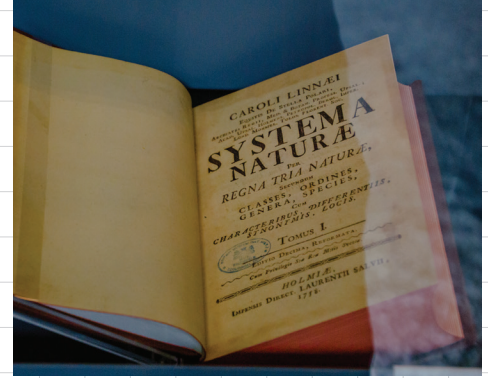 CAROLI LINNÆI
EQUITIS DE STELLA POLARI,
SYSTEMA
NATURÆ
PER
REGNA TRIA NATURÆ,
SECUNDUM
CLASSES, ORDINES,
GENERA, SPECIES,
CUM
CHARACTERIBUS, DIFFERENTIIS,
SYNONYMIS, LOCIS.
TOMUS I.
EDITIO DECIMA, REFORMATA.
HOLMIÆ,
IMPENSIS DIRECT. LAURENTII SALVII,
1758.